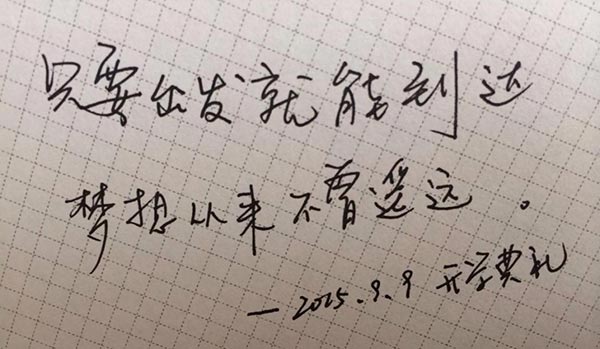 只要出发就能到达
梦想从来不曾遥远。
—2015.9.9 开学典礼